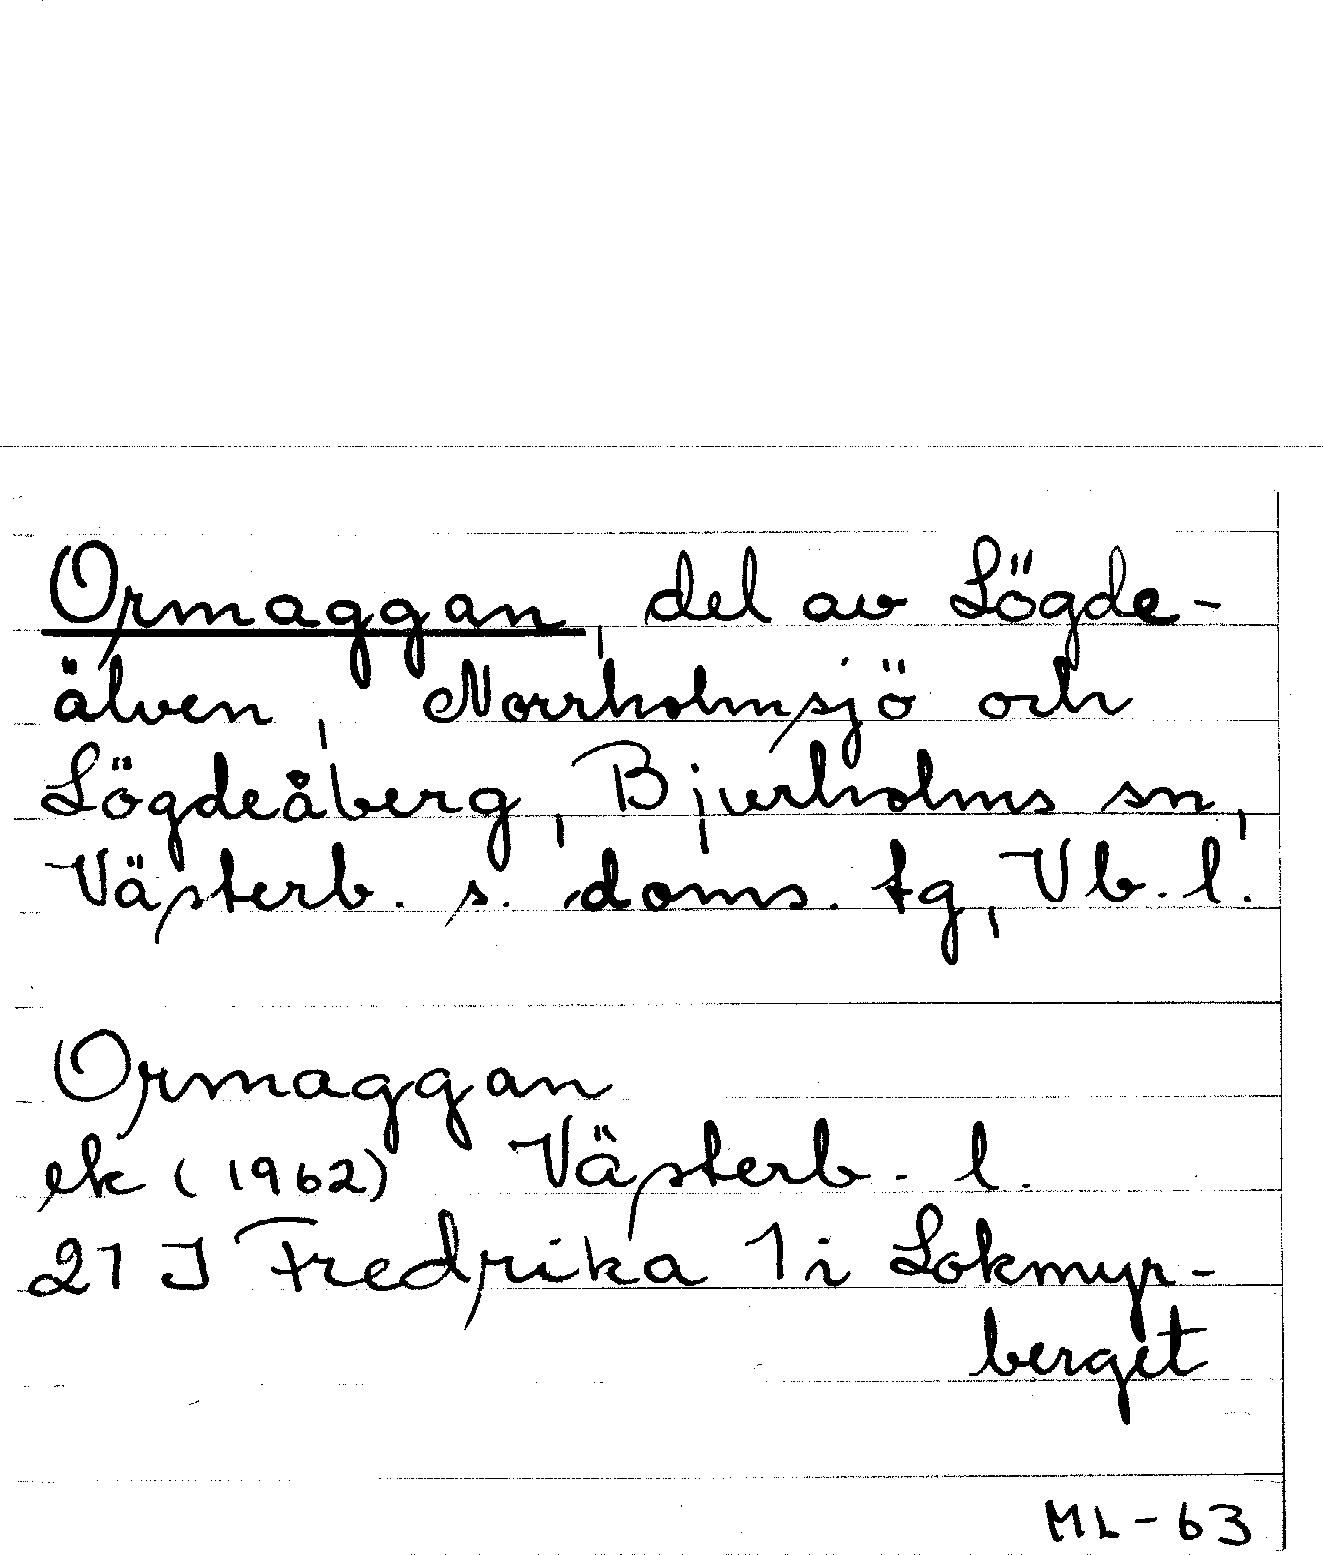 Ormaggan, del av Lögde-
älven, Norrholmsjö och
Lögdeåberg, Bjurholms sn,
Västerb. s. doms. tg, Vb. l.
Ormaggan
ek (1962) Västerb. l.
21 J Fredrika 1i Lokmyr-
berget
ML-63